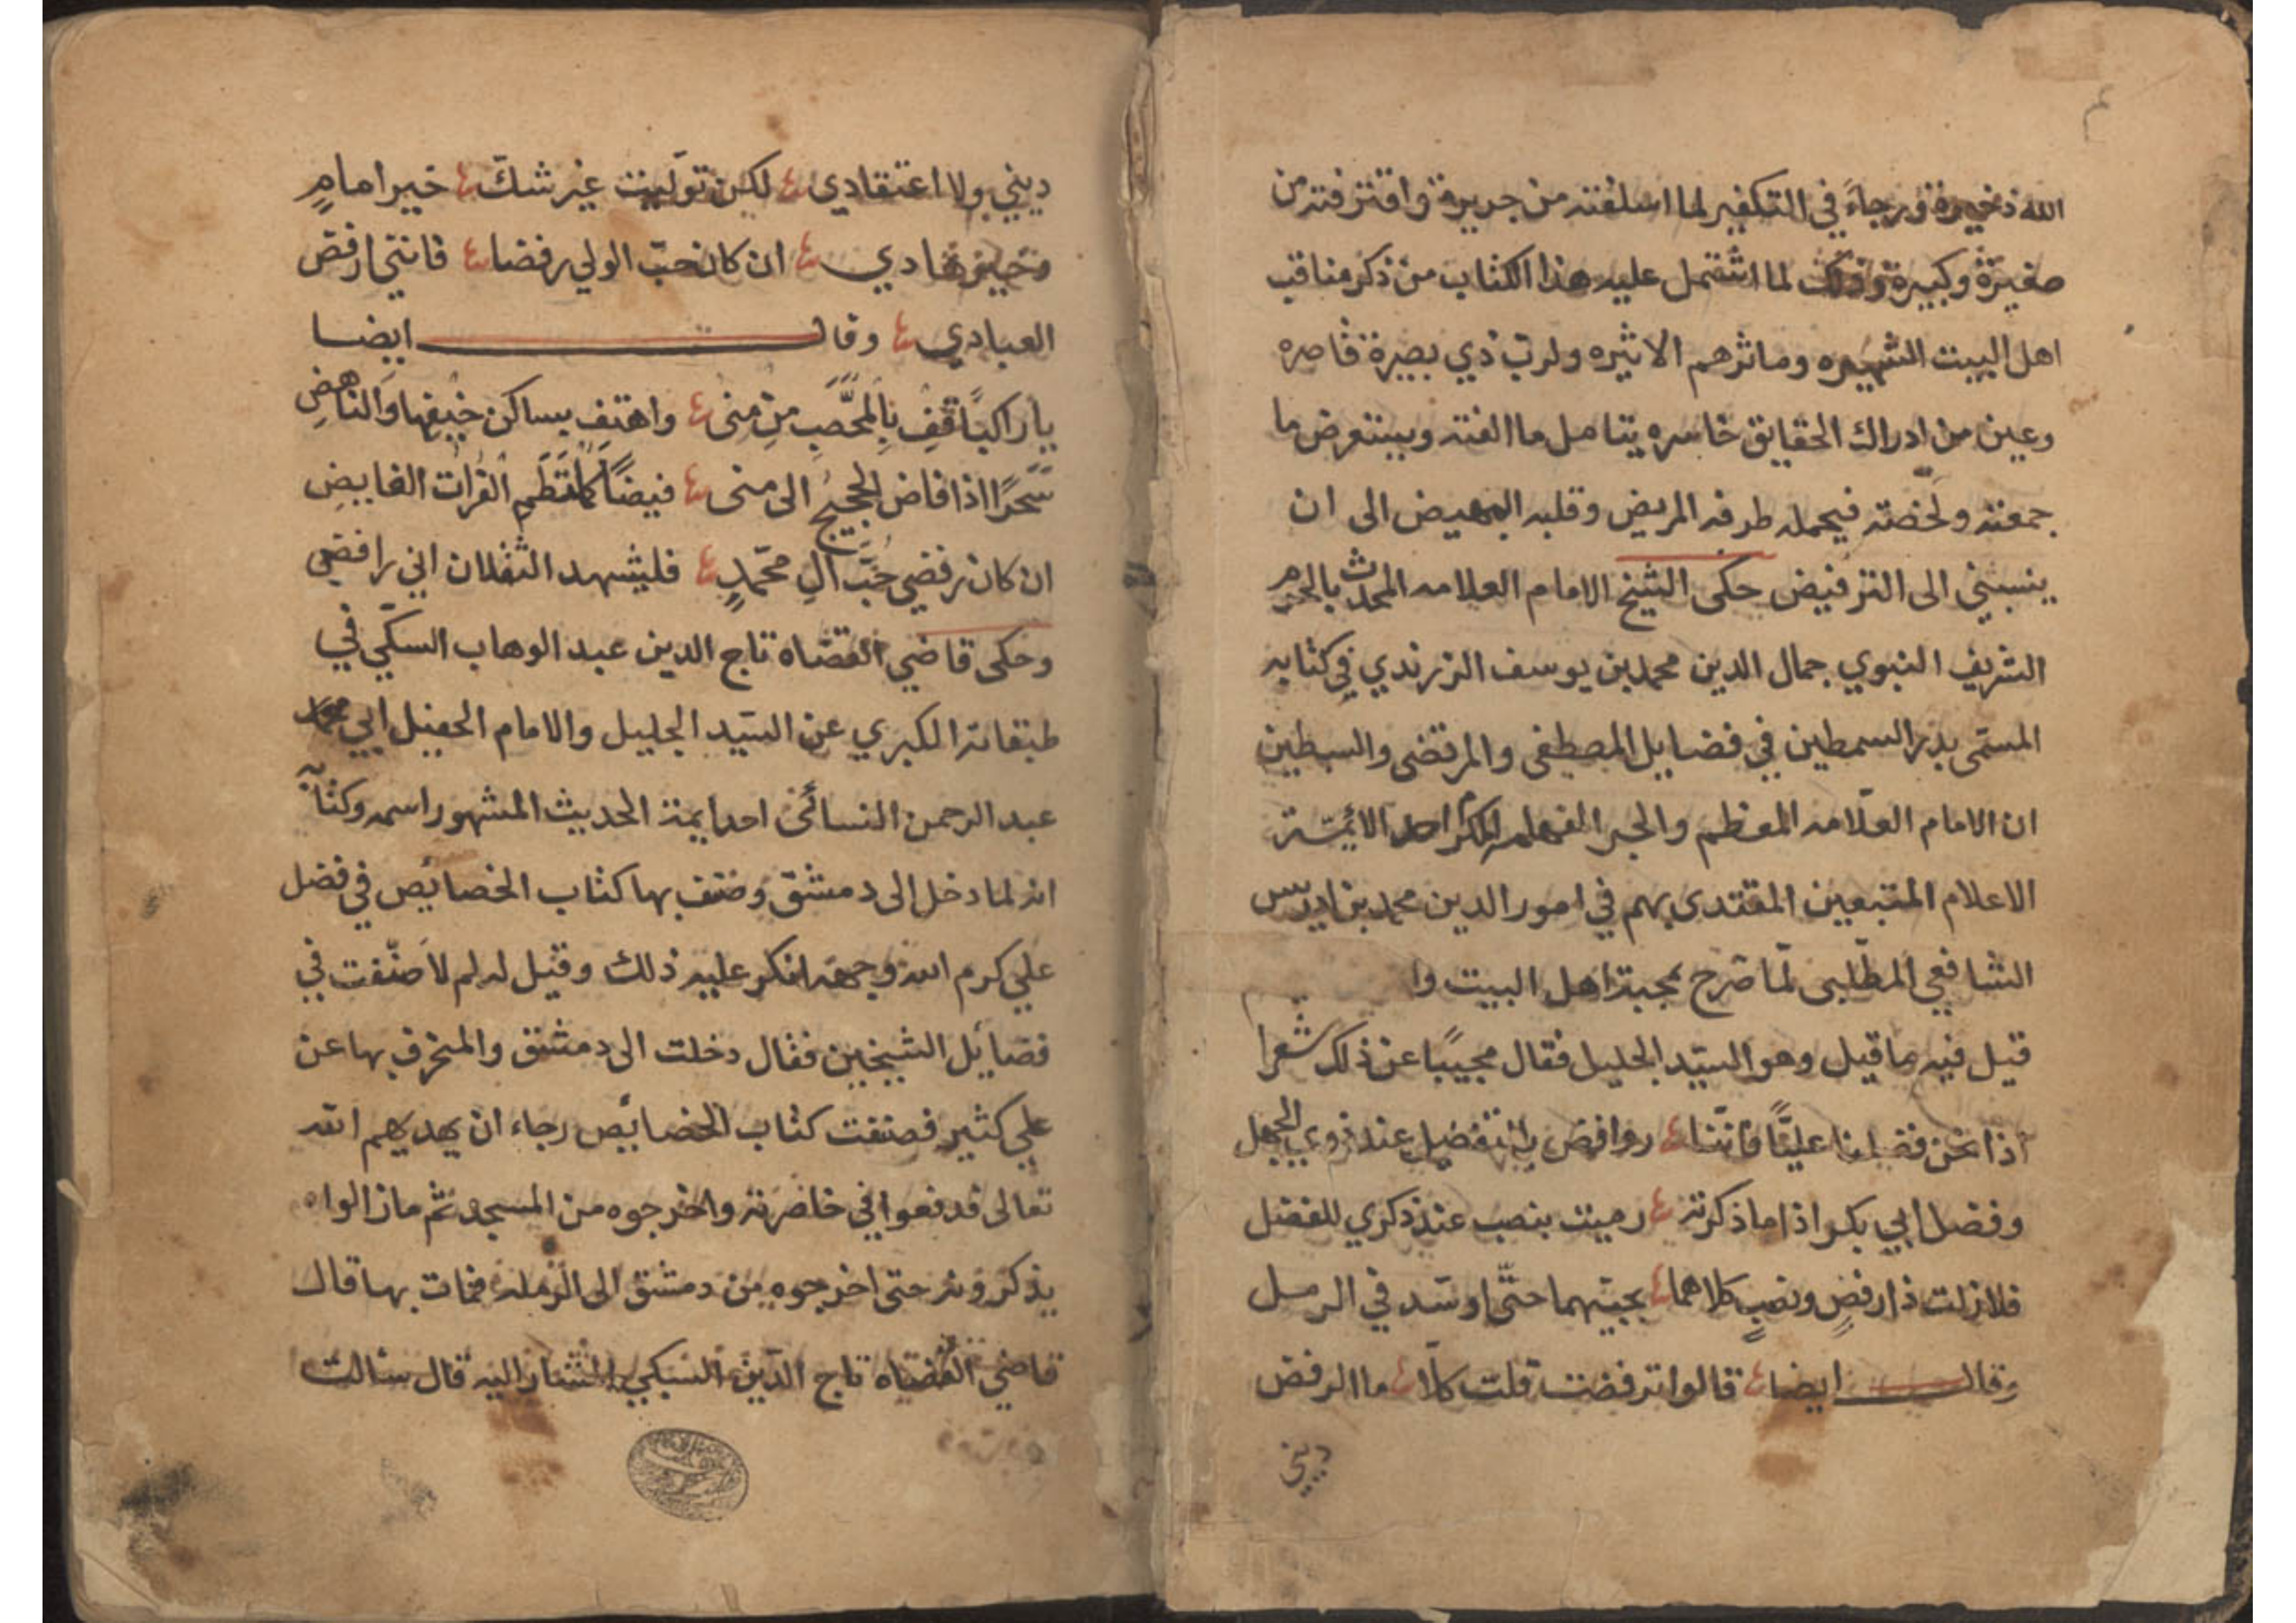 الله ذخيرة ورجاءً في التكفير لما اسلفته من جريرة واقترفته من
صغيرة وكبيرة وذلك لما اشتمل عليه هذا الكتاب من ذكر مناقب
اهل البيت الشهيره وماثرهم الاثيره ولرب ذي بصيرة قاصره
وعين من ادراك الحقايق خاسره يتامل ما الفته ويستعرض ما
جمعته ولخصته فيحمله طرفه المريض وقلبه المهيض الى ان
ينسبني الى الترفيض حكى الشيخ الامام العلامه المحدث بالحرم
الشريف النبوي جمال الدين محمد بن يوسف الزرندي في كتابه
المسمى بدر السمطين في فضايل المصطفى والمرتضى والسبطين
ان الامام العلّامه المعظم والحبر الفهامه احد الائمّة
الاعلام المتبعين المقتدى بهم في امور الدين محمد بن ادريس
الشافعي المطّلبى لمّا صَرح بمحبة اهل البيت وا
قيل فيه ما قيل وهو السيّد الجليل فقال مجيبًا عن ذلك شعرا
اذا نحن فضلنا عليًّا فانّنا روافض بالتفضيل عند ذوي الجهل
وفضل ابي بكر اذا ما ذكرته رميت بنصب عند ذكري للفضل
فلا زلت ذا رفضٍ ونصبٍ كلاهما بحبّيهما حتّى اوسّد في الرمل
وقال ايضا قالوا ترفضت قلت كلّا ما الرفض
ديني
ديني ولا اعتقادي لكن تولّيت غير شكّ خير امامٍ
وخير هادي ان كان حبّ الولي رفضا فانني ارفض
العبادي وقال ايضا
يا راكبًا قِف بِالمحَّصَبِ مِن مِنى واهتِف بساكن خيفها وَالناهضِ
سَحَرًا اذا فاض الحجيجُ الى منى فيضًا كملتَطِم الفُرات الفايضِ
ان كان رفضي حُبَّ آلِ محمّدٍ فليشهد الثقلان اني رافضي
وحكى قاضي القضاه تاج الدين عبد الوهاب السبكّي في
طبقاته الكبري عن السيّد الجليل والامام الحفيل ابي
عبد الرحمن النسائى احد ايمة الحديث المشهور اسمه وكتابه
انه لما دخل الى دمشق وصنف بها كتاب الخصائص في فضل
علي كرم الله وجهه انكر عليه ذلك وقيل له لم لا صنّفت في
فضائل الشيخين فقال دخلت الى دمشق والمنحرف بها عن
علي كثير فصنفت كتاب الخصائص رجاء ان يهديهم الله
تعالى فدفعوا في خاصرته واخرجوه من المسجد ثم ما زالوا
يذكرونه حتى اخرجوه من دمشق الى الرمله فمات بها قال
قاضي القضاه تاج الدّين السبكي المشار اليه قال سالت